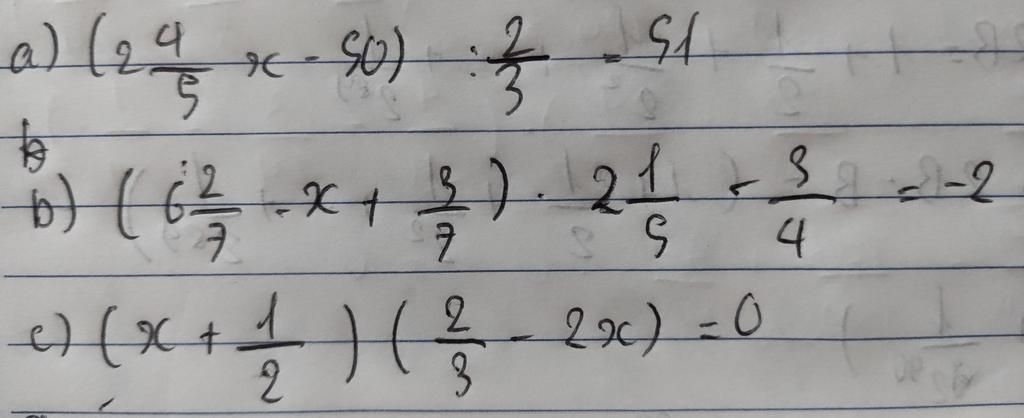 a) (2 4/5 x - 50) : 2/3 = 51
b
b) (6 2/7 . x + 3/7) . 2 1/5 - 3/4 = -2
c) (x + 1/2) (2/3 - 2x) = 0